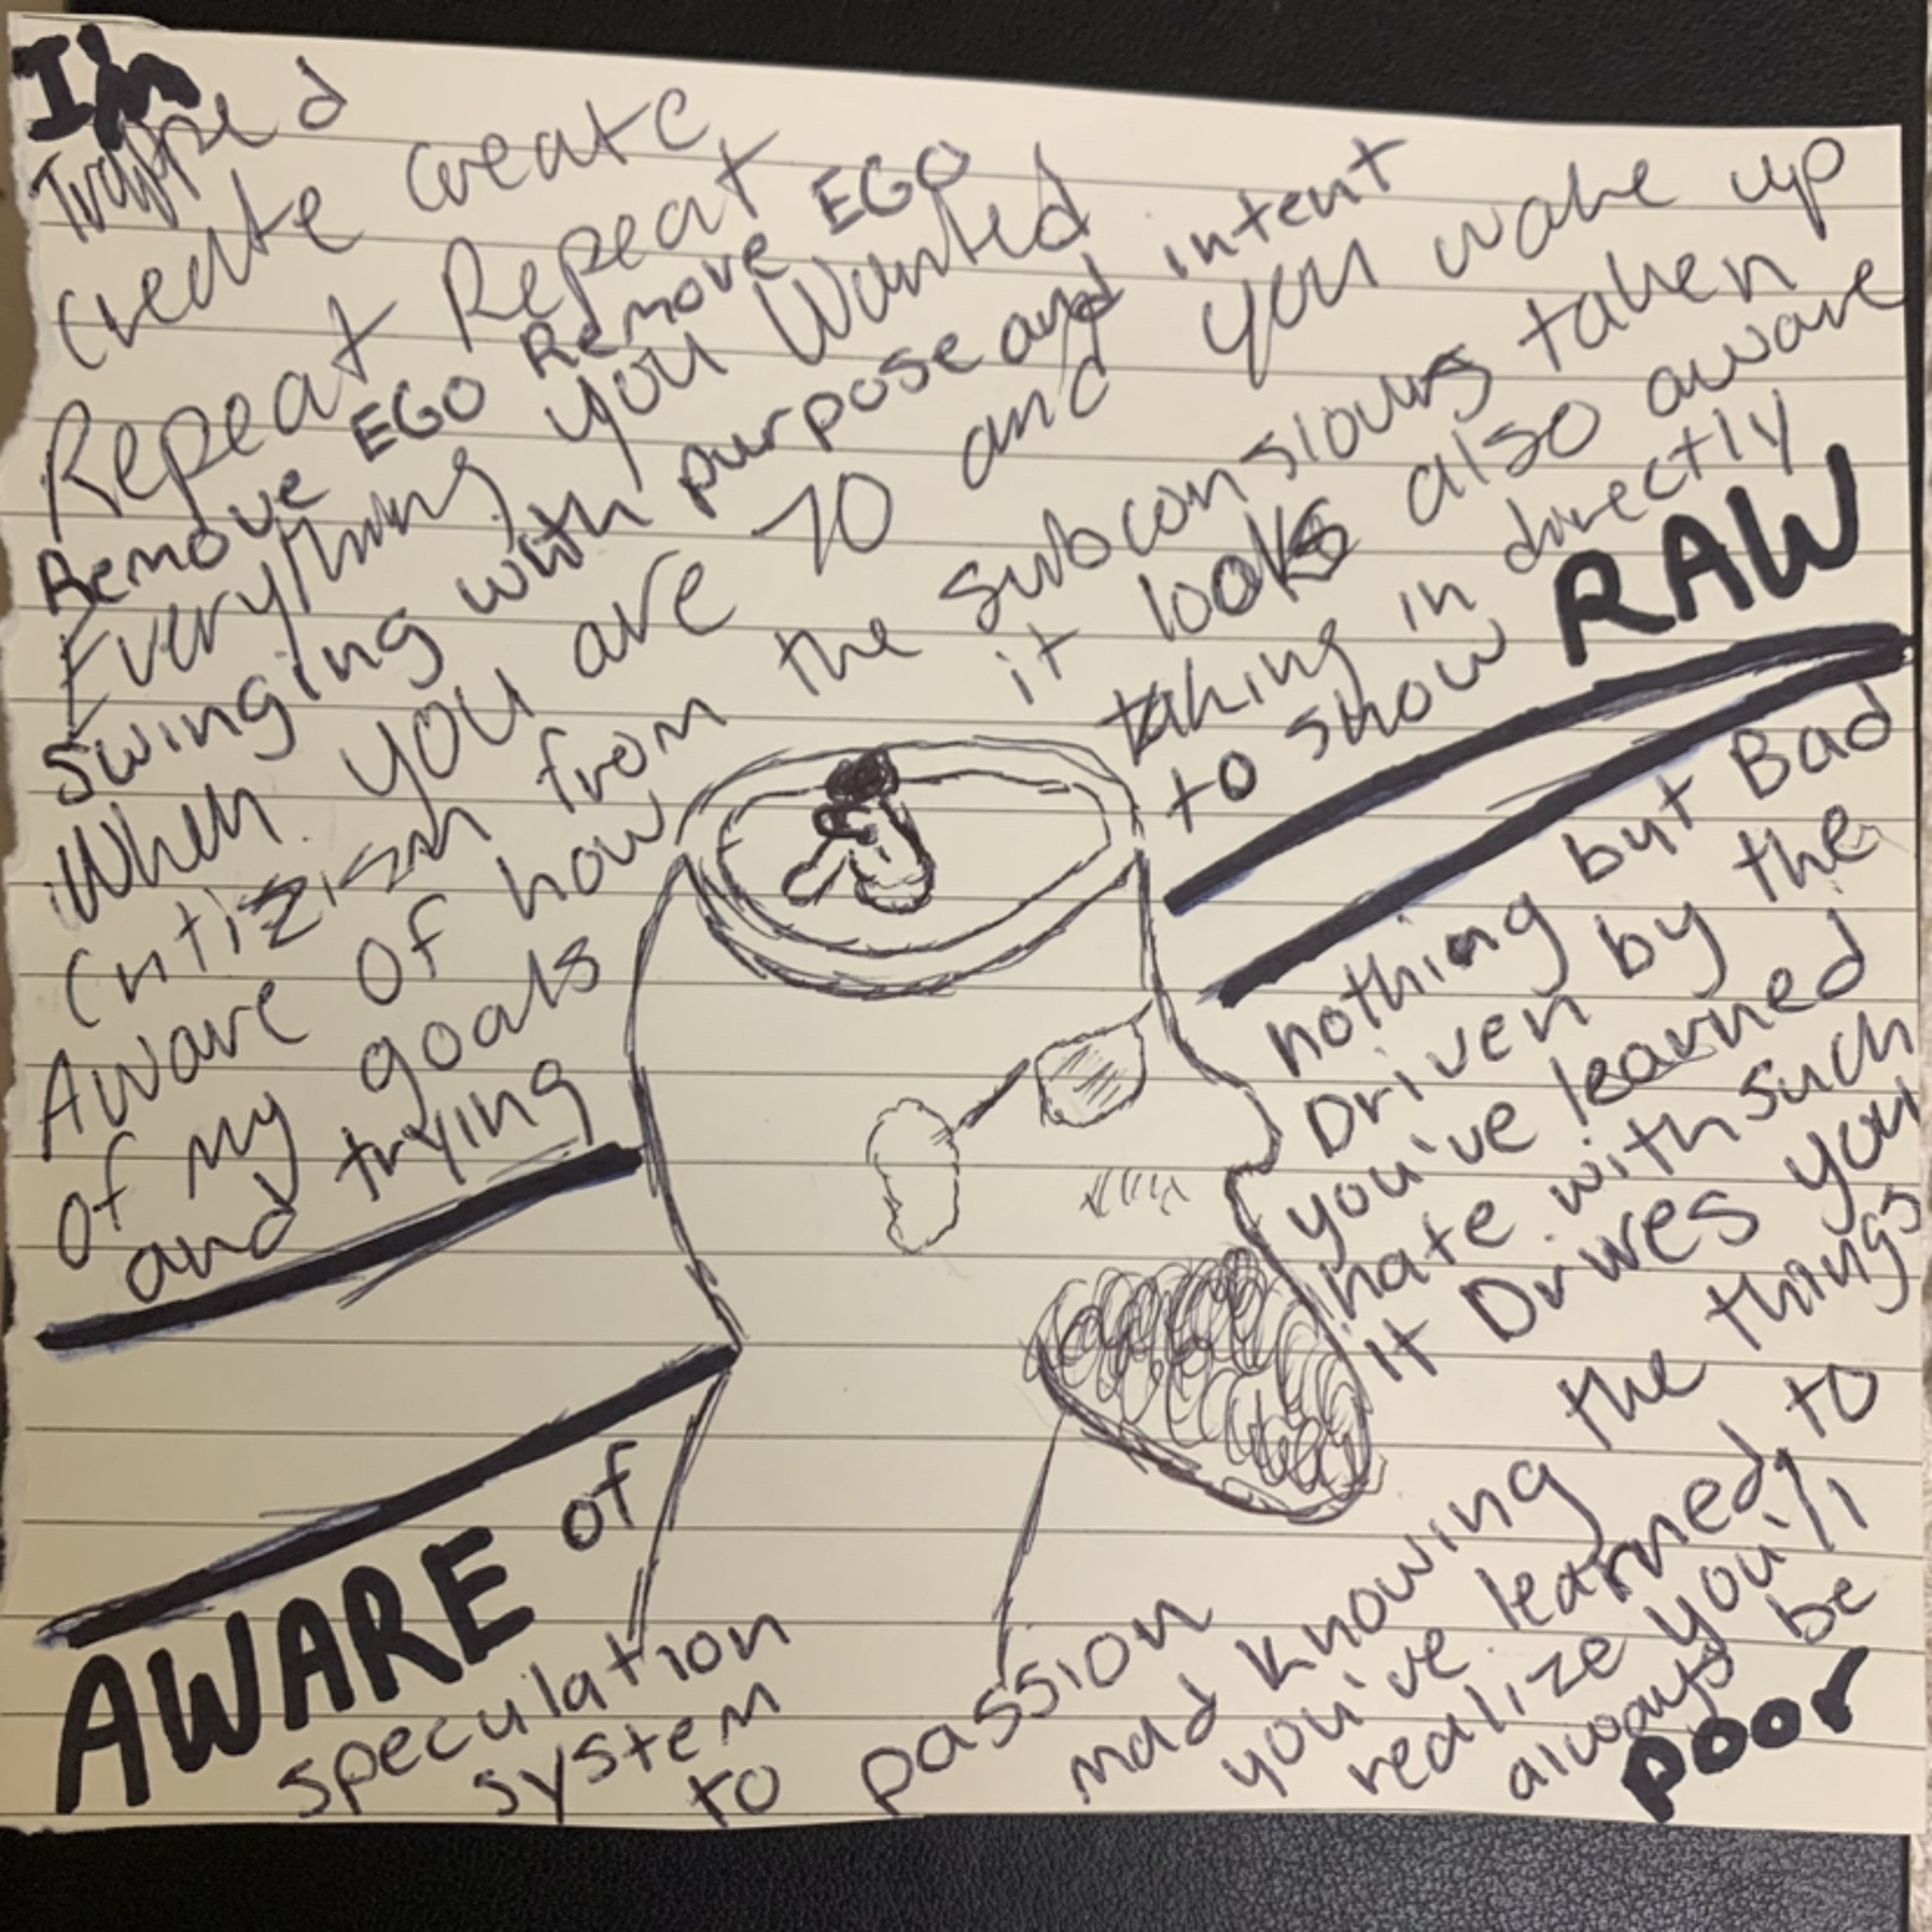 I'm
Trapped
create create create
Repeat Repeat Repeat
Remove EGO Remove EGO
Everything you Wanted
Swinging with purpose and intent
When you are 70 and you wake up
Critizism from the subconsious taken
Aware of how it looks also aware
of my goals taking in directly
and trying to show RAW
nothing but Bad
Driven by the
you've learned
hate with such
it Drives you
AWARE of
speculation
system
to passion
mad knowing the things
you've learned, to
realize you'll
always be
poor